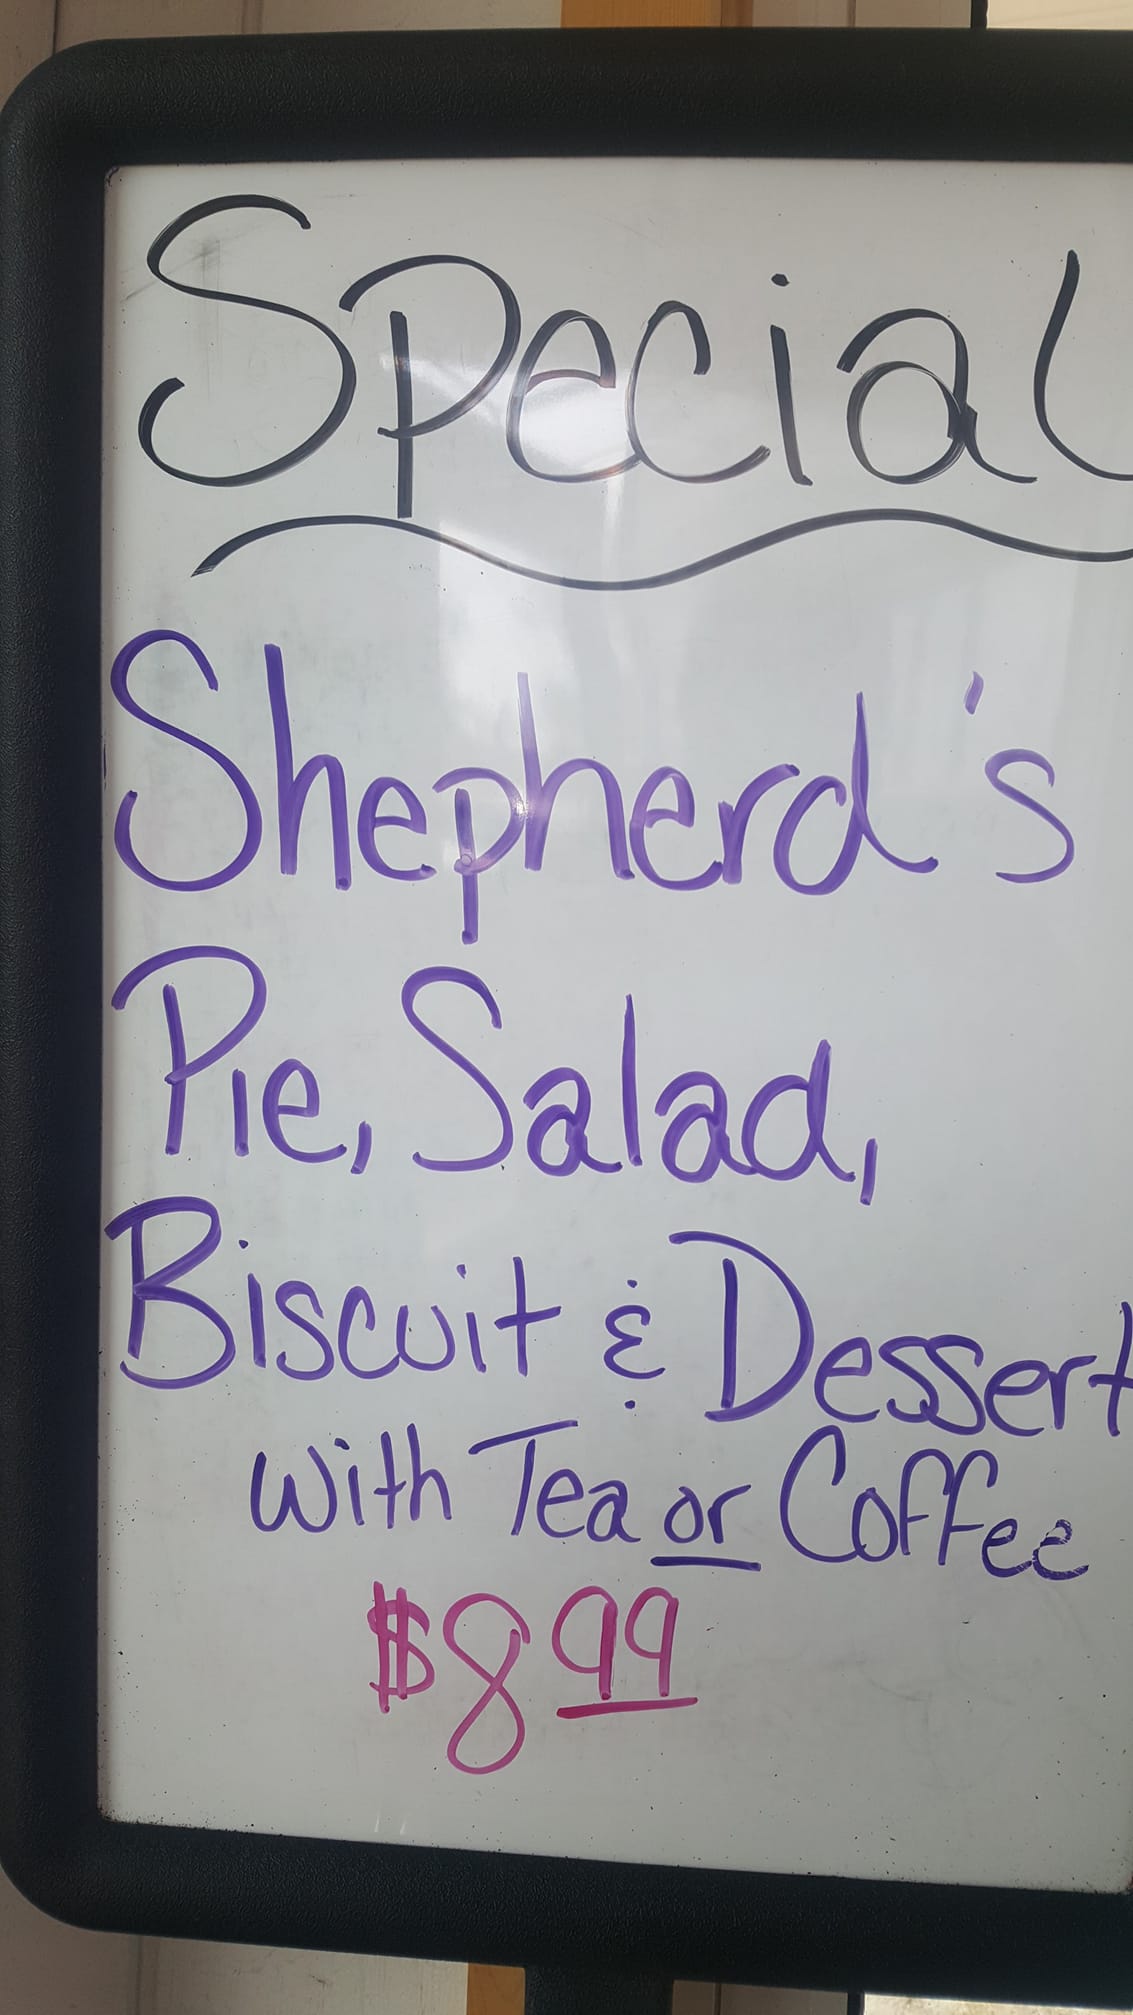 Special
Shepherd's
Pie, Salad,
Biscuit & Dessert
with Tea or Coffee
$8 99